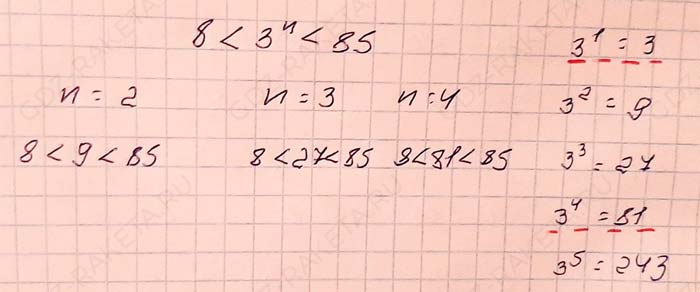 8 < 3ⁿ < 85
3¹ = 3
n = 2 n = 3 n = 4
3² = 9
8 < 9 < 85 8 < 27 < 85 8 < 81 < 85
3³ = 27
3⁴ = 81
3⁵ = 243